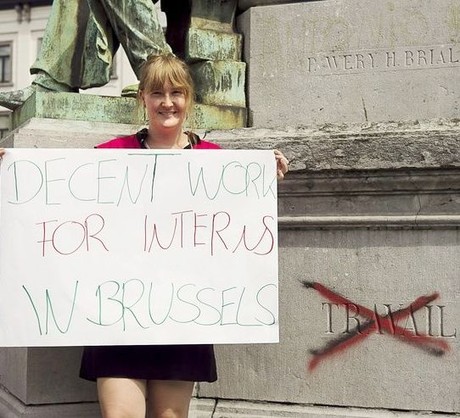 P. WERY H. BRIAL
DECENT WORK
FOR INTERNS
IN BRUSSELS
TRAVAIL